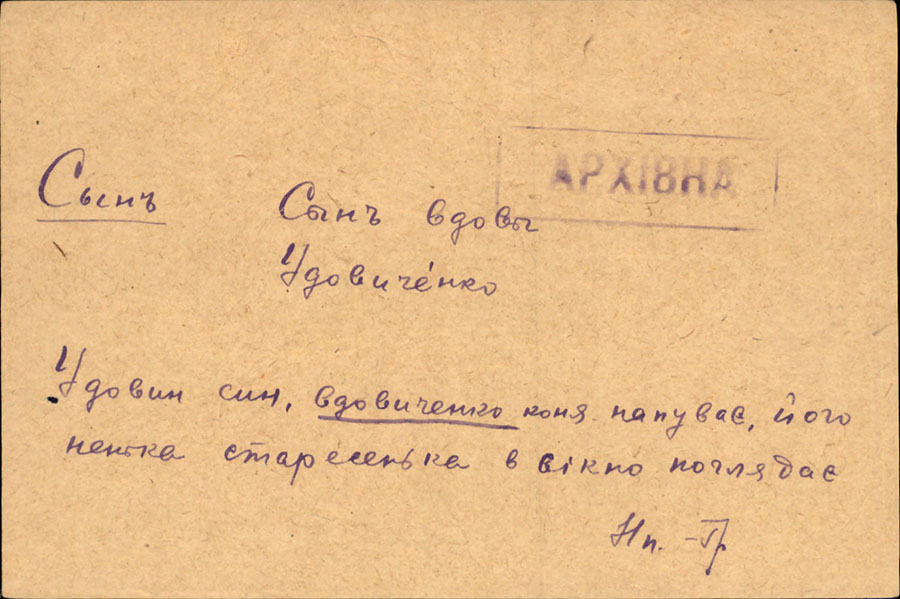 АРХІВНА
Сынъ
Сынъ вдовы
Удовиче́нко
Удовин син, вдовиченко коня напуває, його
ненька старесенька в вікно поглядає
Нп. -Гр